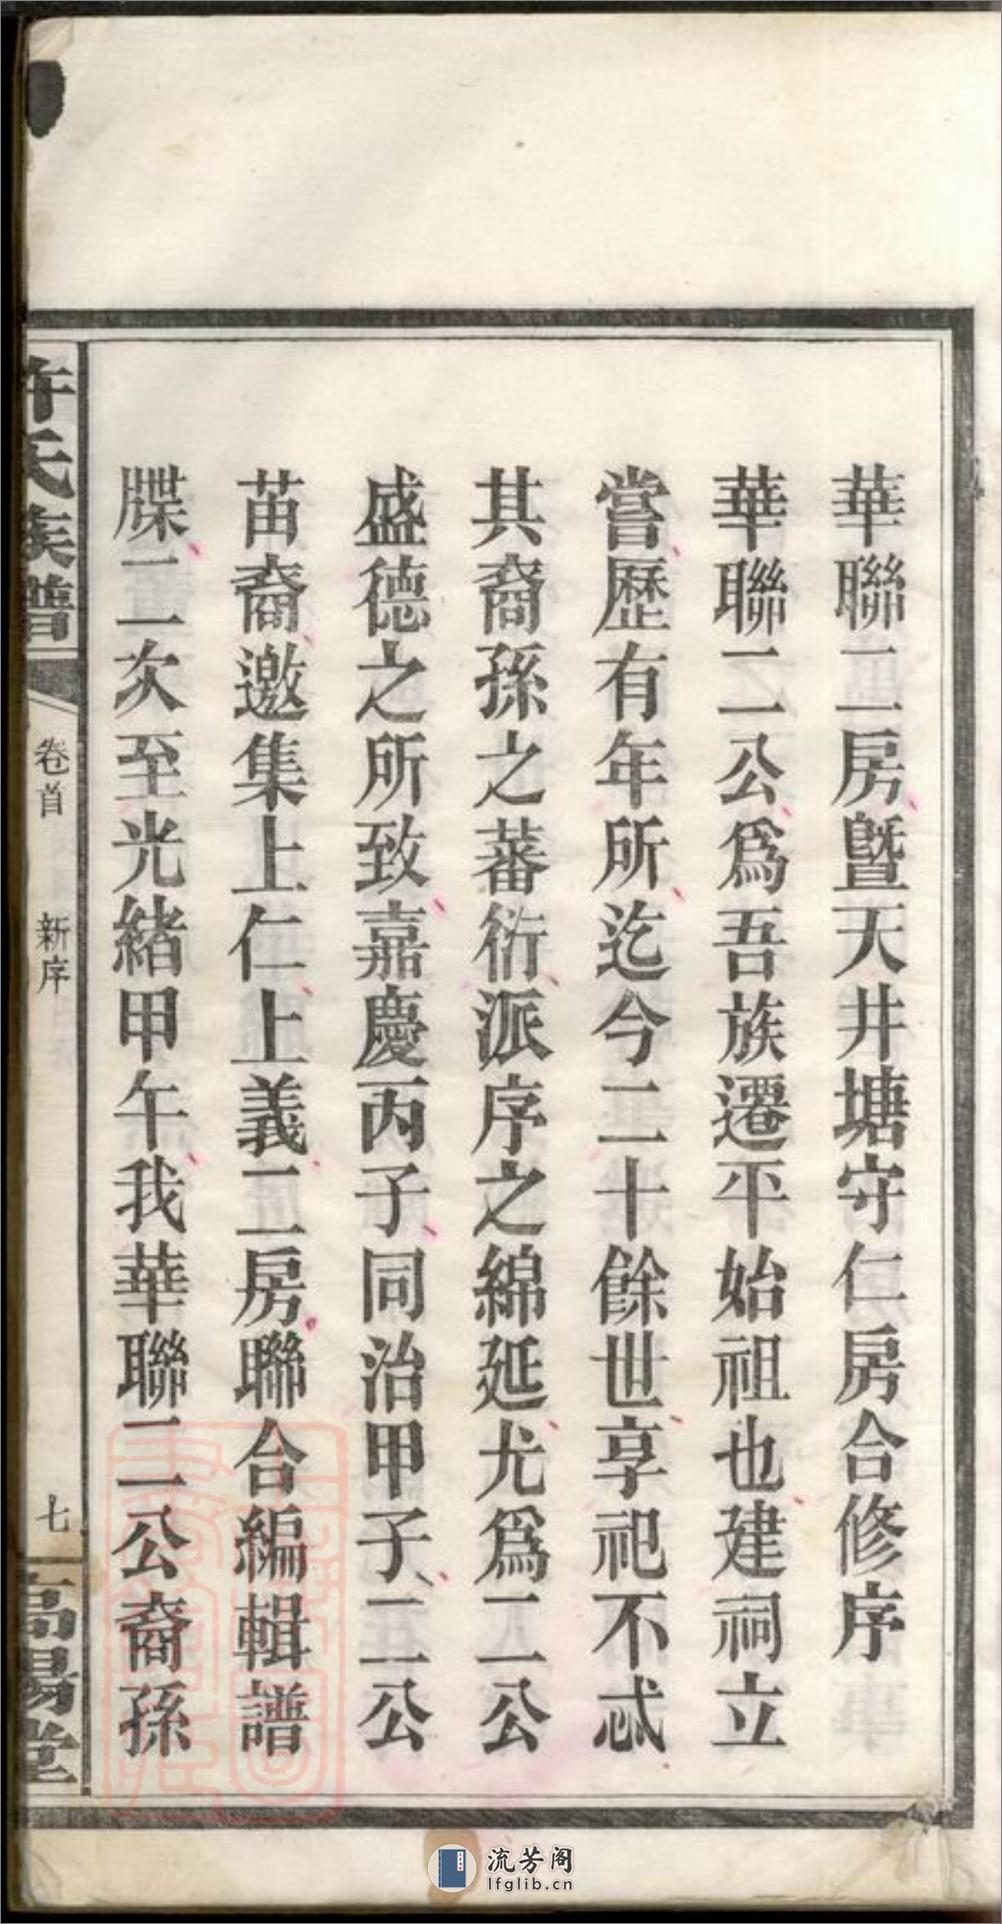 華聯二房暨天井塘守仁房合修序
華聯二公爲吾族遷平始祖也建祠立
嘗歷有年所迄今二十餘世享祀不忒
其裔孫之蕃衍派序之綿延尤爲二公
盛德之所致嘉慶丙子同治甲子二公
苗裔邀集上仁上義二房聯合編輯譜
牒二次至光緒甲午我華聯二公裔孫
許氏族譜
卷首
新序
七
高陽堂
流芳阁
lfglib.cn